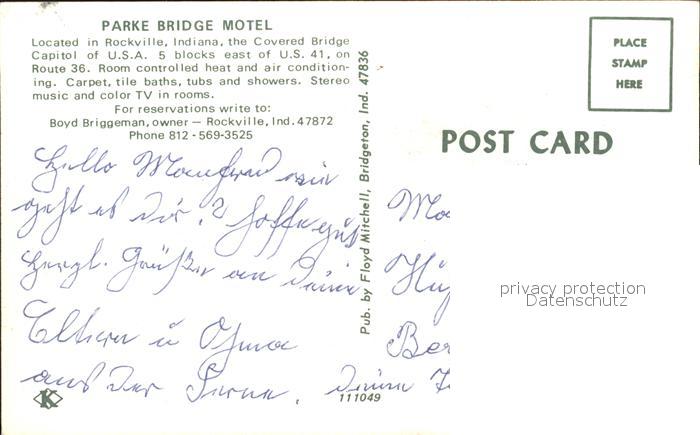 PARKE BRIDGE MOTEL
Located in Rockville, Indiana, the Covered Bridge
Capitol of U.S.A. 5 blocks east of U.S. 41, on
Route 36. Room controlled heat and air condition-
ing. Carpet, tile baths, tubs and showers. Stereo
music and color TV in rooms.
For reservations write to:
Boyd Briggeman, owner — Rockville, Ind. 47872
Phone 812 - 569-3525
Hello Manfred wie
geht es Dir? Hoffe gut
Herzl. Grüße an Deine
Eltern u Oma
aus der Ferne.
Pub. by Floyd Mitchell, Bridgeton, Ind. 47836
K
111049
PLACE
STAMP
HERE
POST CARD
Ma
Ber
privacy protection
Datenschutz